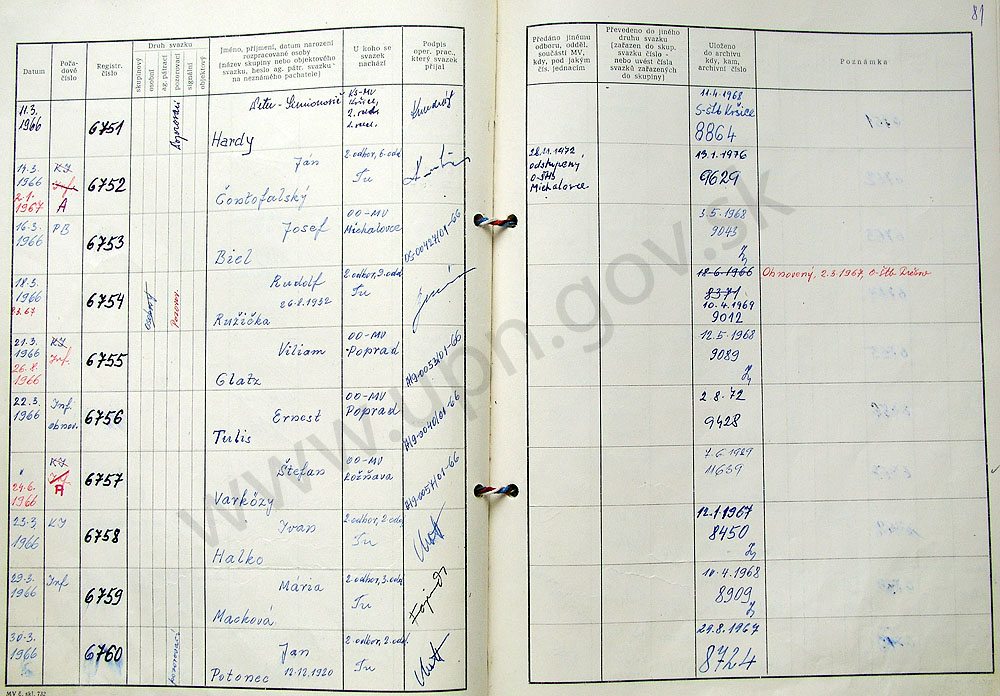 81
Datum
Pořadové číslo
Registr. číslo
Druh svazku
skupinový
osobní
ag. pátrací
pozorovací
signální
objektový
Jméno, příjmení, datum narození
rozpracované osoby
(název skupiny nebo objektového
svazku, heslo ag. pátr. svazku
na neznámého pachatele)
U koho se
svazek
nachází
Podpis
oper. prac.,
který svazek
přijal
Předáno jinému
odboru, odděl.
součásti MV,
kdy, pod jakým
čís. jednacím
Převedeno do jiného
druhu svazku
(zařazen do skup.
svazku číslo -
nebo uvést čísla
svazků zařazených
do skupiny)
Uloženo
do archivu
kdy, kam,
archivní číslo
Poznámka
11.3.
1966
6751
pozorovací
Hardy
KS-MV
Košice,
11.4.1968
S-ŠtB Košice
8864
14.3.
1966
2.1.
1967
KJ
A
6752
Ján
Čontofalský
2. odbor, 6. odd.
Tu
28.11.1972
odstúpený
O-ŠtB
Michalovce
13.1.1976
9629
16.3.
1966
PB
6753
Josef
Biel
OO-MV
Michalovce
OS-00427/01-66
3.5.1968
9043
18.3.
1966
2.3.67
6754
Pozorov.
Rudolf
26.8.1932
Ružička
2. odbor, 9. odd.
Tu
18.6.1966
8371
10.4.1969
9012
Obnovený, 2.3.1967, O-ŠtB
21.3.
1966
26.8.
1966
KJ
Inf.
6755
Viliam
Glatz
OO-MV
Poprad
A19-0053/01-66
12.5.1968
9089
22.3.
1966
Inf.
obnov.
6756
Ernost
Tulis
OO-MV
Poprad
A19-0040/01-66
2.8.72
9428
"
24.6.
1966
KJ
A
6757
Štefan
Varkózy
OO-MV
Rožňava
A19-0057/01-66
7.6.1989
11639
23.3.
1966
KJ
6758
Ivan
Halko
2. odbor, 2. odd.
Tu
12.1.1967
8450
29.3.
1966
Inf
6759
Mária
Macková
2. odbor, 3. odd.
Tu
10.4.1968
8909
30.3.
1966
6760
pozorovací
Jan
Potonec 12.12.1920
2. odbor, 2. odd.
Tu
29.8.1967
8724
MV č. skl. 732
www.upn.gov.sk